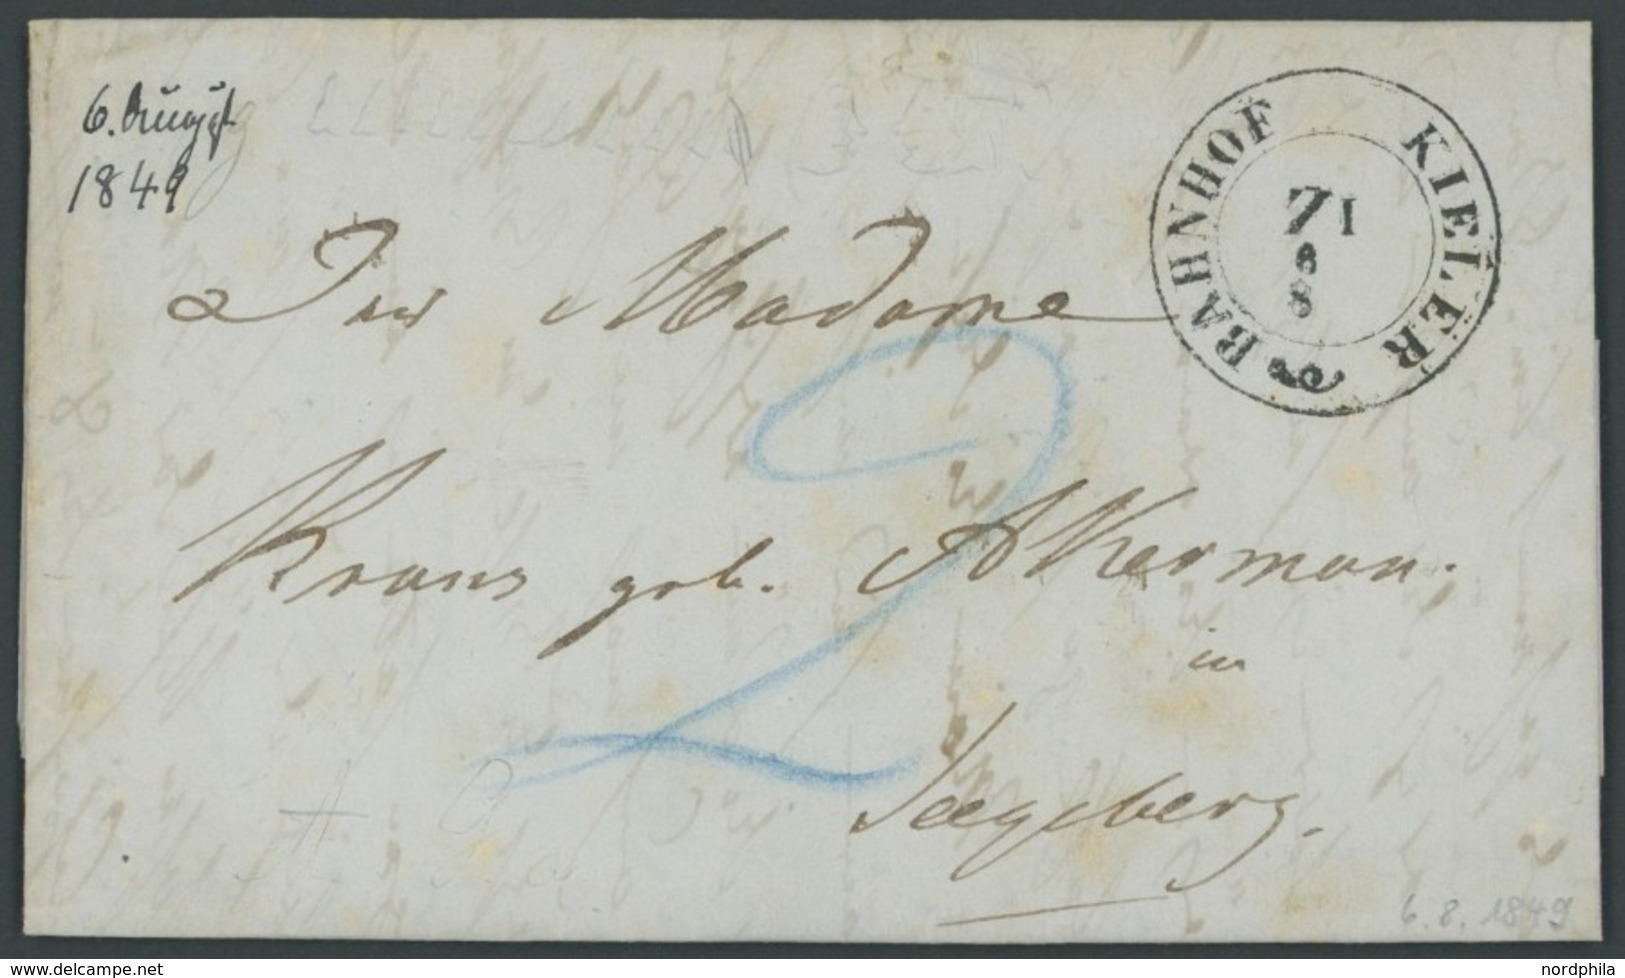 6. August
1849
KIELER BAHNHOF
Z I
8
8
Der Madame
Kraus geb. Akkerman.
in
Seegeberg.
2
6. 8. 1849
delcampe.net
nordphila